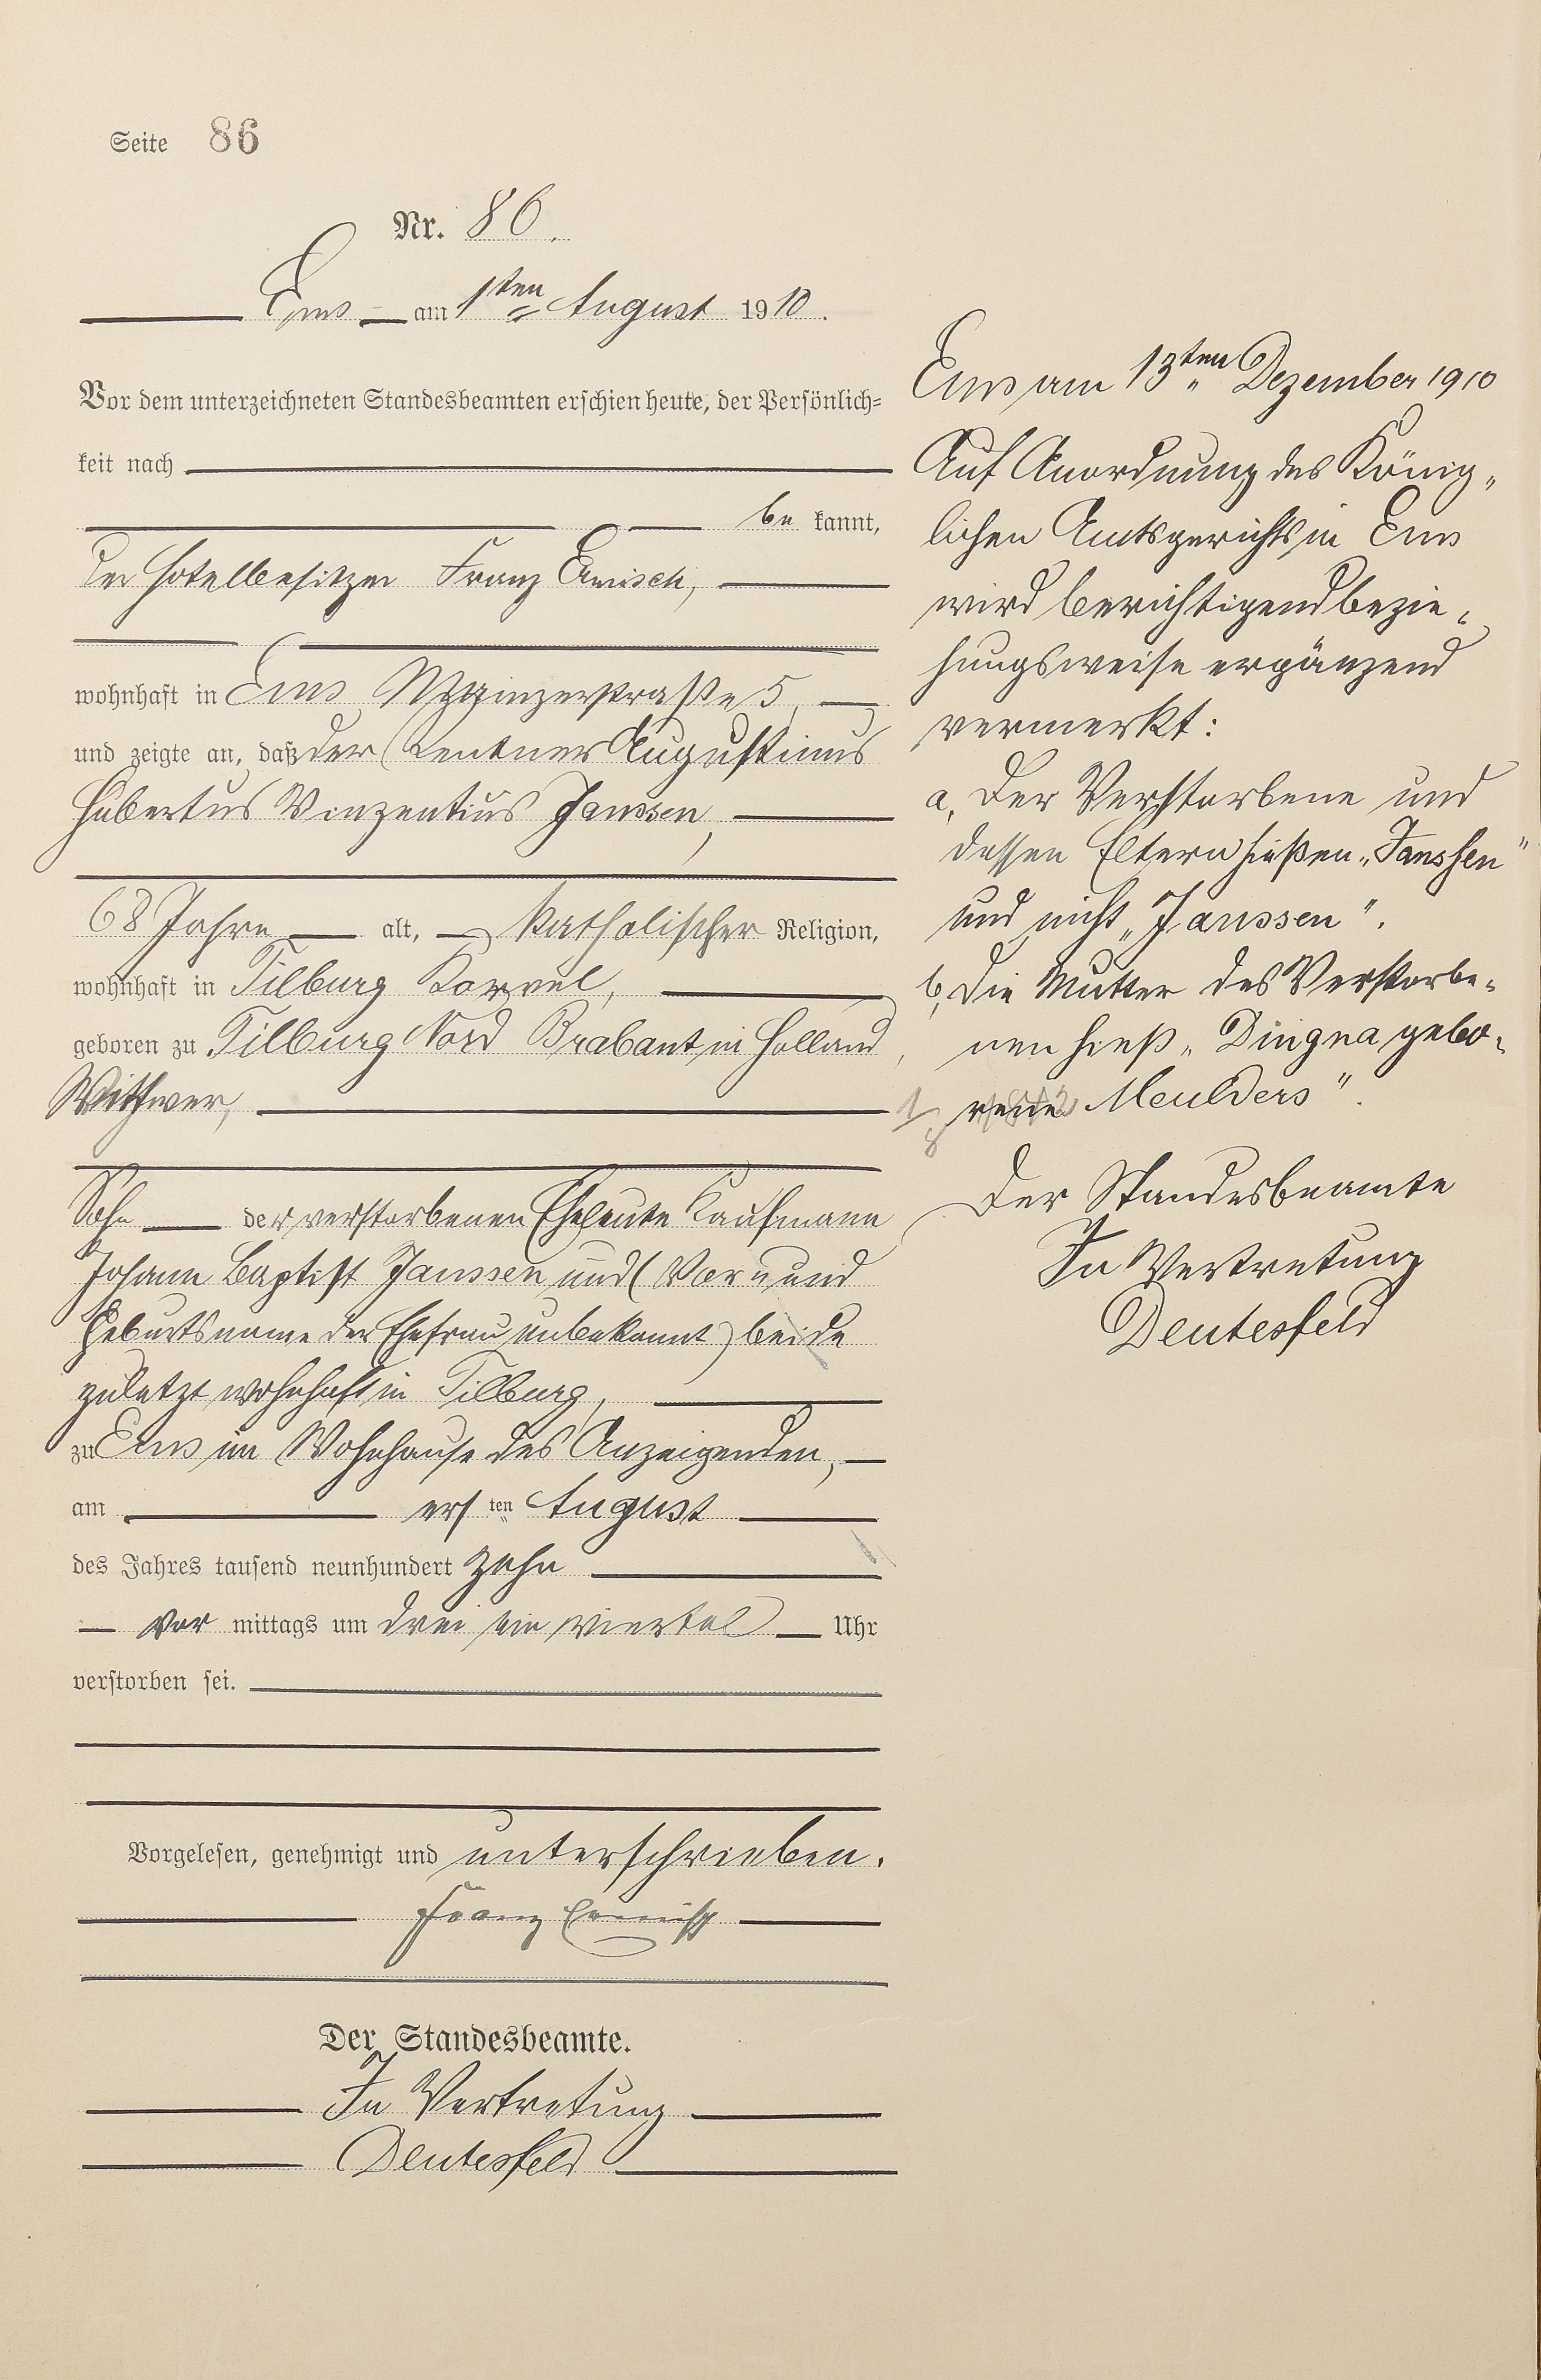 Seite 86
Nr. 86.
Ems am 1ten August 1910.
Vor dem unterzeichneten Standesbeamten erschien heute, der Persönlich=
keit nach
be kannt,
der Hotelbesitzer Franz Ermisch,
wohnhaft in Ems Mainzerstraße 5,
und zeigte an, daß der Rentner Augustinus
Hubertus Vinzentius Janssen,
68 Jahre alt, katholischer Religion,
wohnhaft in Tilburg Korvel,
geboren zu Tilburg Nord Brabant in Holland,
Witthwer,
Sohn der verstorbenen Eheleute Kaufmann
Johann Baptist Janssen und (Vor u und
Geburtsname der Ehefrau unbekannt) beide
zuletzt wohnhaft in Tilburg,
zu Ems im Wohnhause des Anzeigenden,
am ersten August
des Jahres tausend neunhundert zehn
vor mittags um drei ein viertel Uhr
verstorben sei.
Vorgelesen, genehmigt und unterschrieben.
Franz Ermisch
Der Standesbeamte.
In Vertretung
Deutesfeld
Ems am 13ten Dezember 1910
Auf Anordnung des König„
lichen Amtsgerichts in Ems
wird berichtigend bezie„
hungsweise ergänzend
vermerkt:
a, Der Verstorbene und
dessen Eltern hießen „Janssen"
und nicht „Janssen".
b, Die Mutter des Verstorbe„
nen hieß „Dingna gebo„
rene Meulders".
Der Standesbeamte
In Vertretung
Deutesfeld